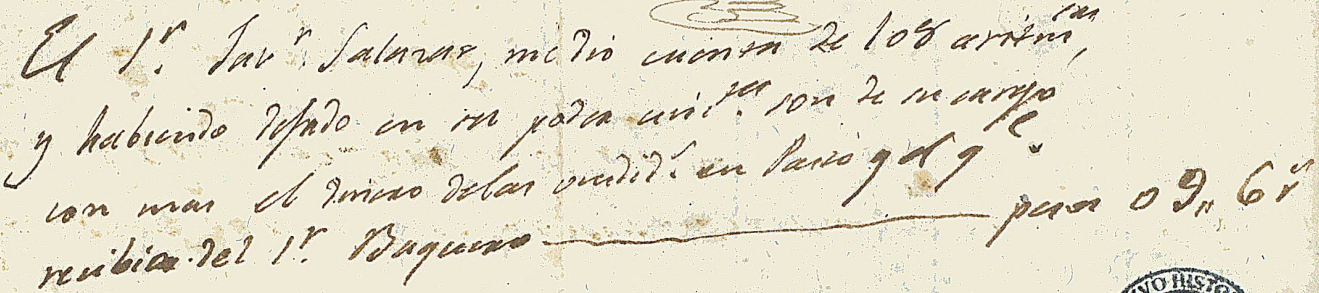 El Sr. Javr. Salazar, me dio cuenta de los aritm.cas,
y habiendo dejado en su poder son de su cargo
con mas el dinero delas vendid.s en Pasto y el q.e
recibio del Sr. Baquero pesos 09,, 6 r.s
VO HISTO